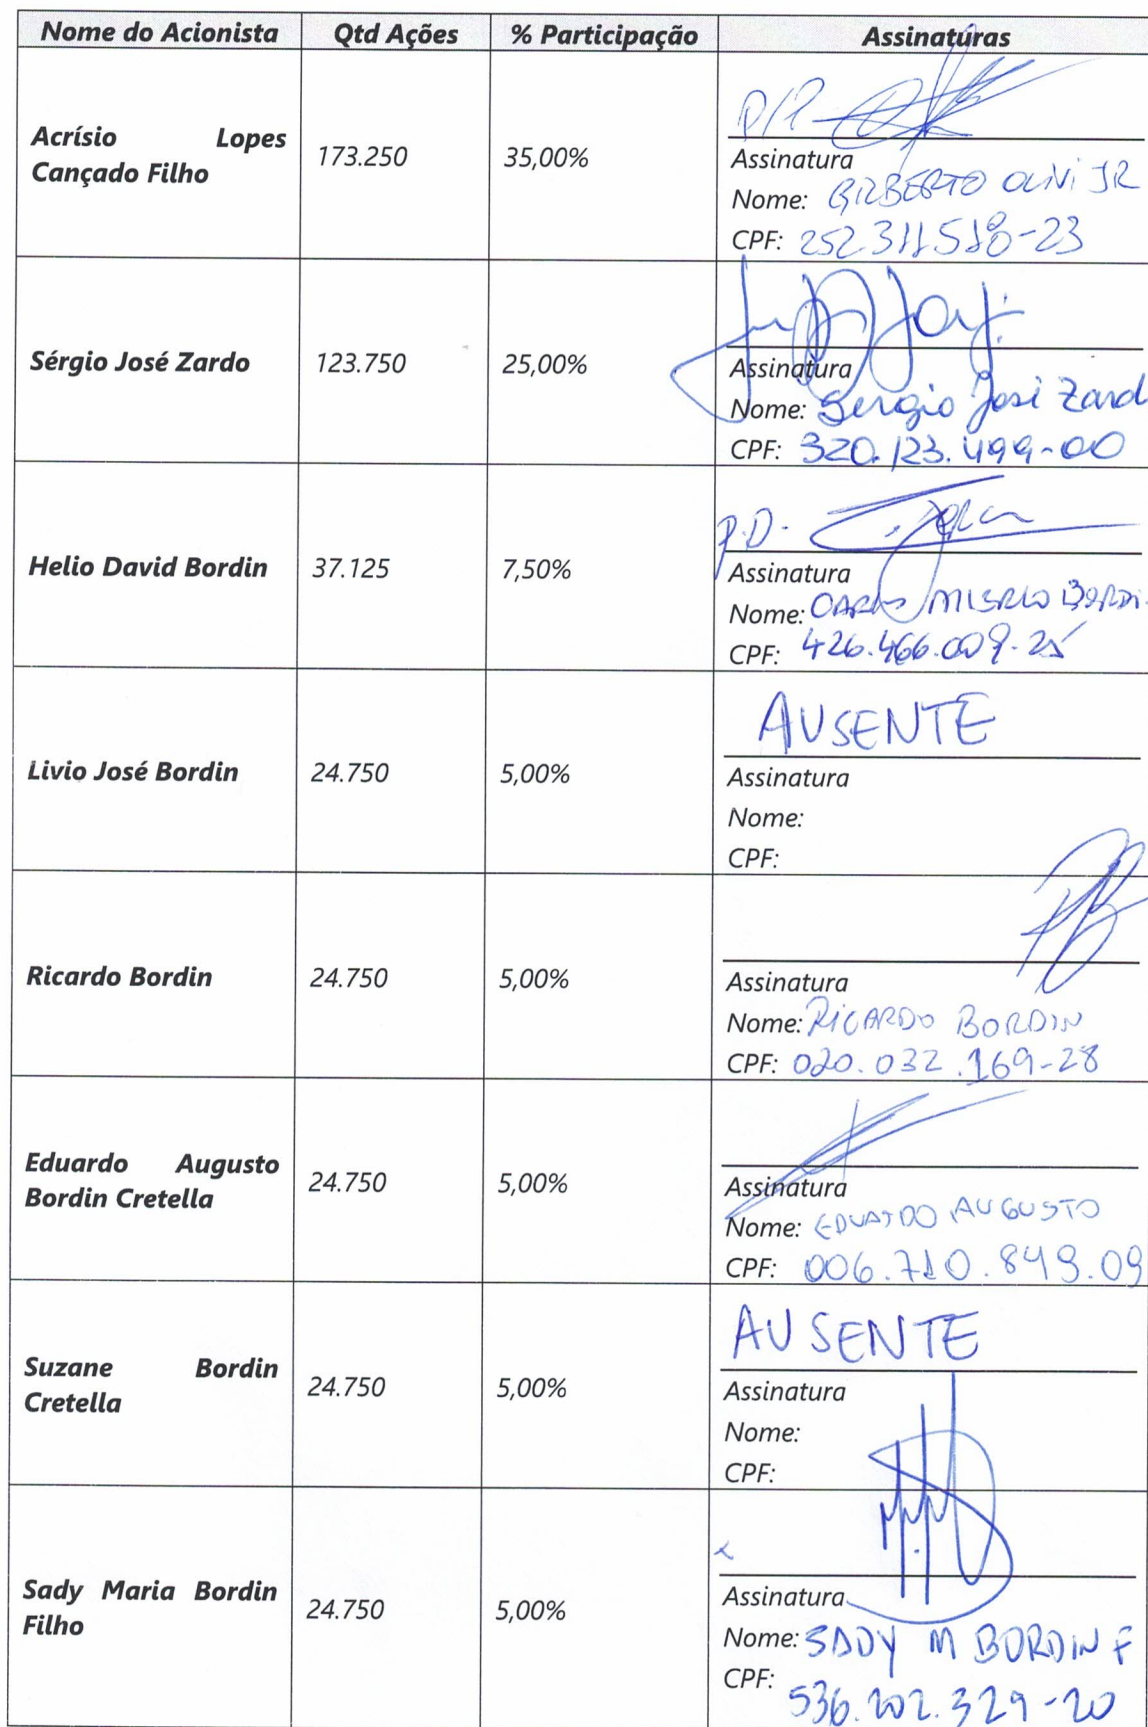 Nome do Acionista Qtd Ações % Participação Assinaturas
P/P
Acrísio Lopes
Cançado Filho
173.250 35,00%
Assinatura
Nome: GILBERTO OLIVI JR
CPF: 252.311.518-23
Sérgio José Zardo 123.750 25,00%
Assinatura
Nome: Sergio José Zard
CPF: 320.123.499-00
P.D.
Helio David Bordin 37.125 7,50%
Assinatura
Nome: BORDI
CPF: 426.466.009-25
AUSENTE
Livio José Bordin 24.750 5,00%
Assinatura
Nome:
CPF:
Ricardo Bordin 24.750 5,00%
Assinatura
Nome: RICARDO BORDIN
CPF: 020.032.169-28
Eduardo Augusto
Bordin Cretella
24.750 5,00%
Assinatura
Nome: EDUARDO AUGUSTO
CPF: 006.710.849.09
AUSENTE
Suzane Bordin
Cretella
24.750 5,00%
Assinatura
Nome:
CPF:
x
Sady Maria Bordin
Filho
24.750 5,00%
Assinatura
Nome: SADY M BORDIN F
CPF:
536.202.329-20